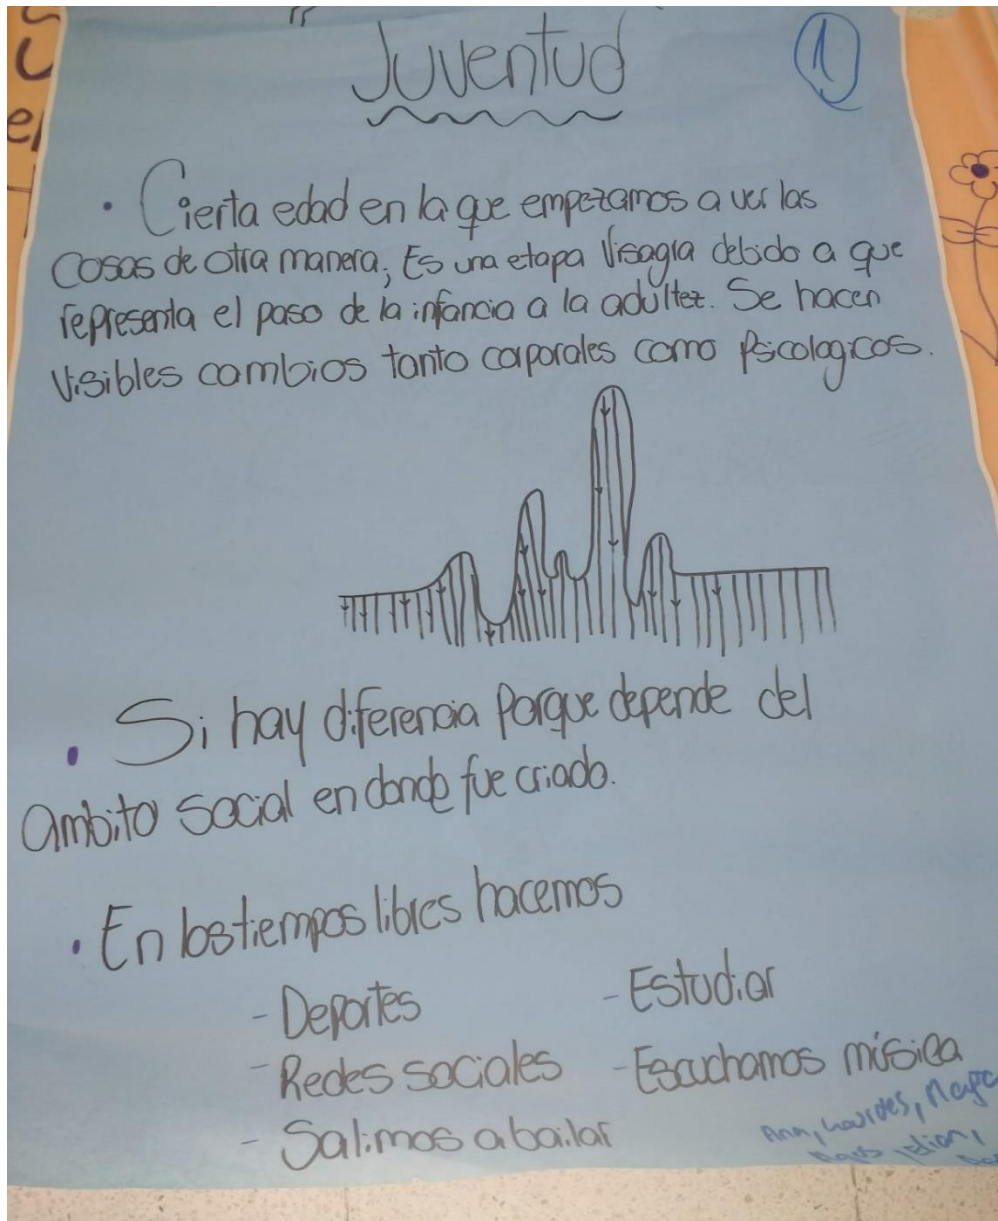 Juventud
1
· Cierta edad en la que empezamos a ver las
cosas de otra manera; Es una etapa Visagra debido a que
representa el paso de la infancia a la adultez. Se hacen
Visibles cambios tanto corporales como Psicologicos.
· Si hay diferencia Porque depende del
ambito social en donde fue criado.
· En los tiempos libres hacemos
- Deportes - Estudiar
- Redes sociales - Escuchamos música
- Salimos a bailar
Ana, Lourdes,